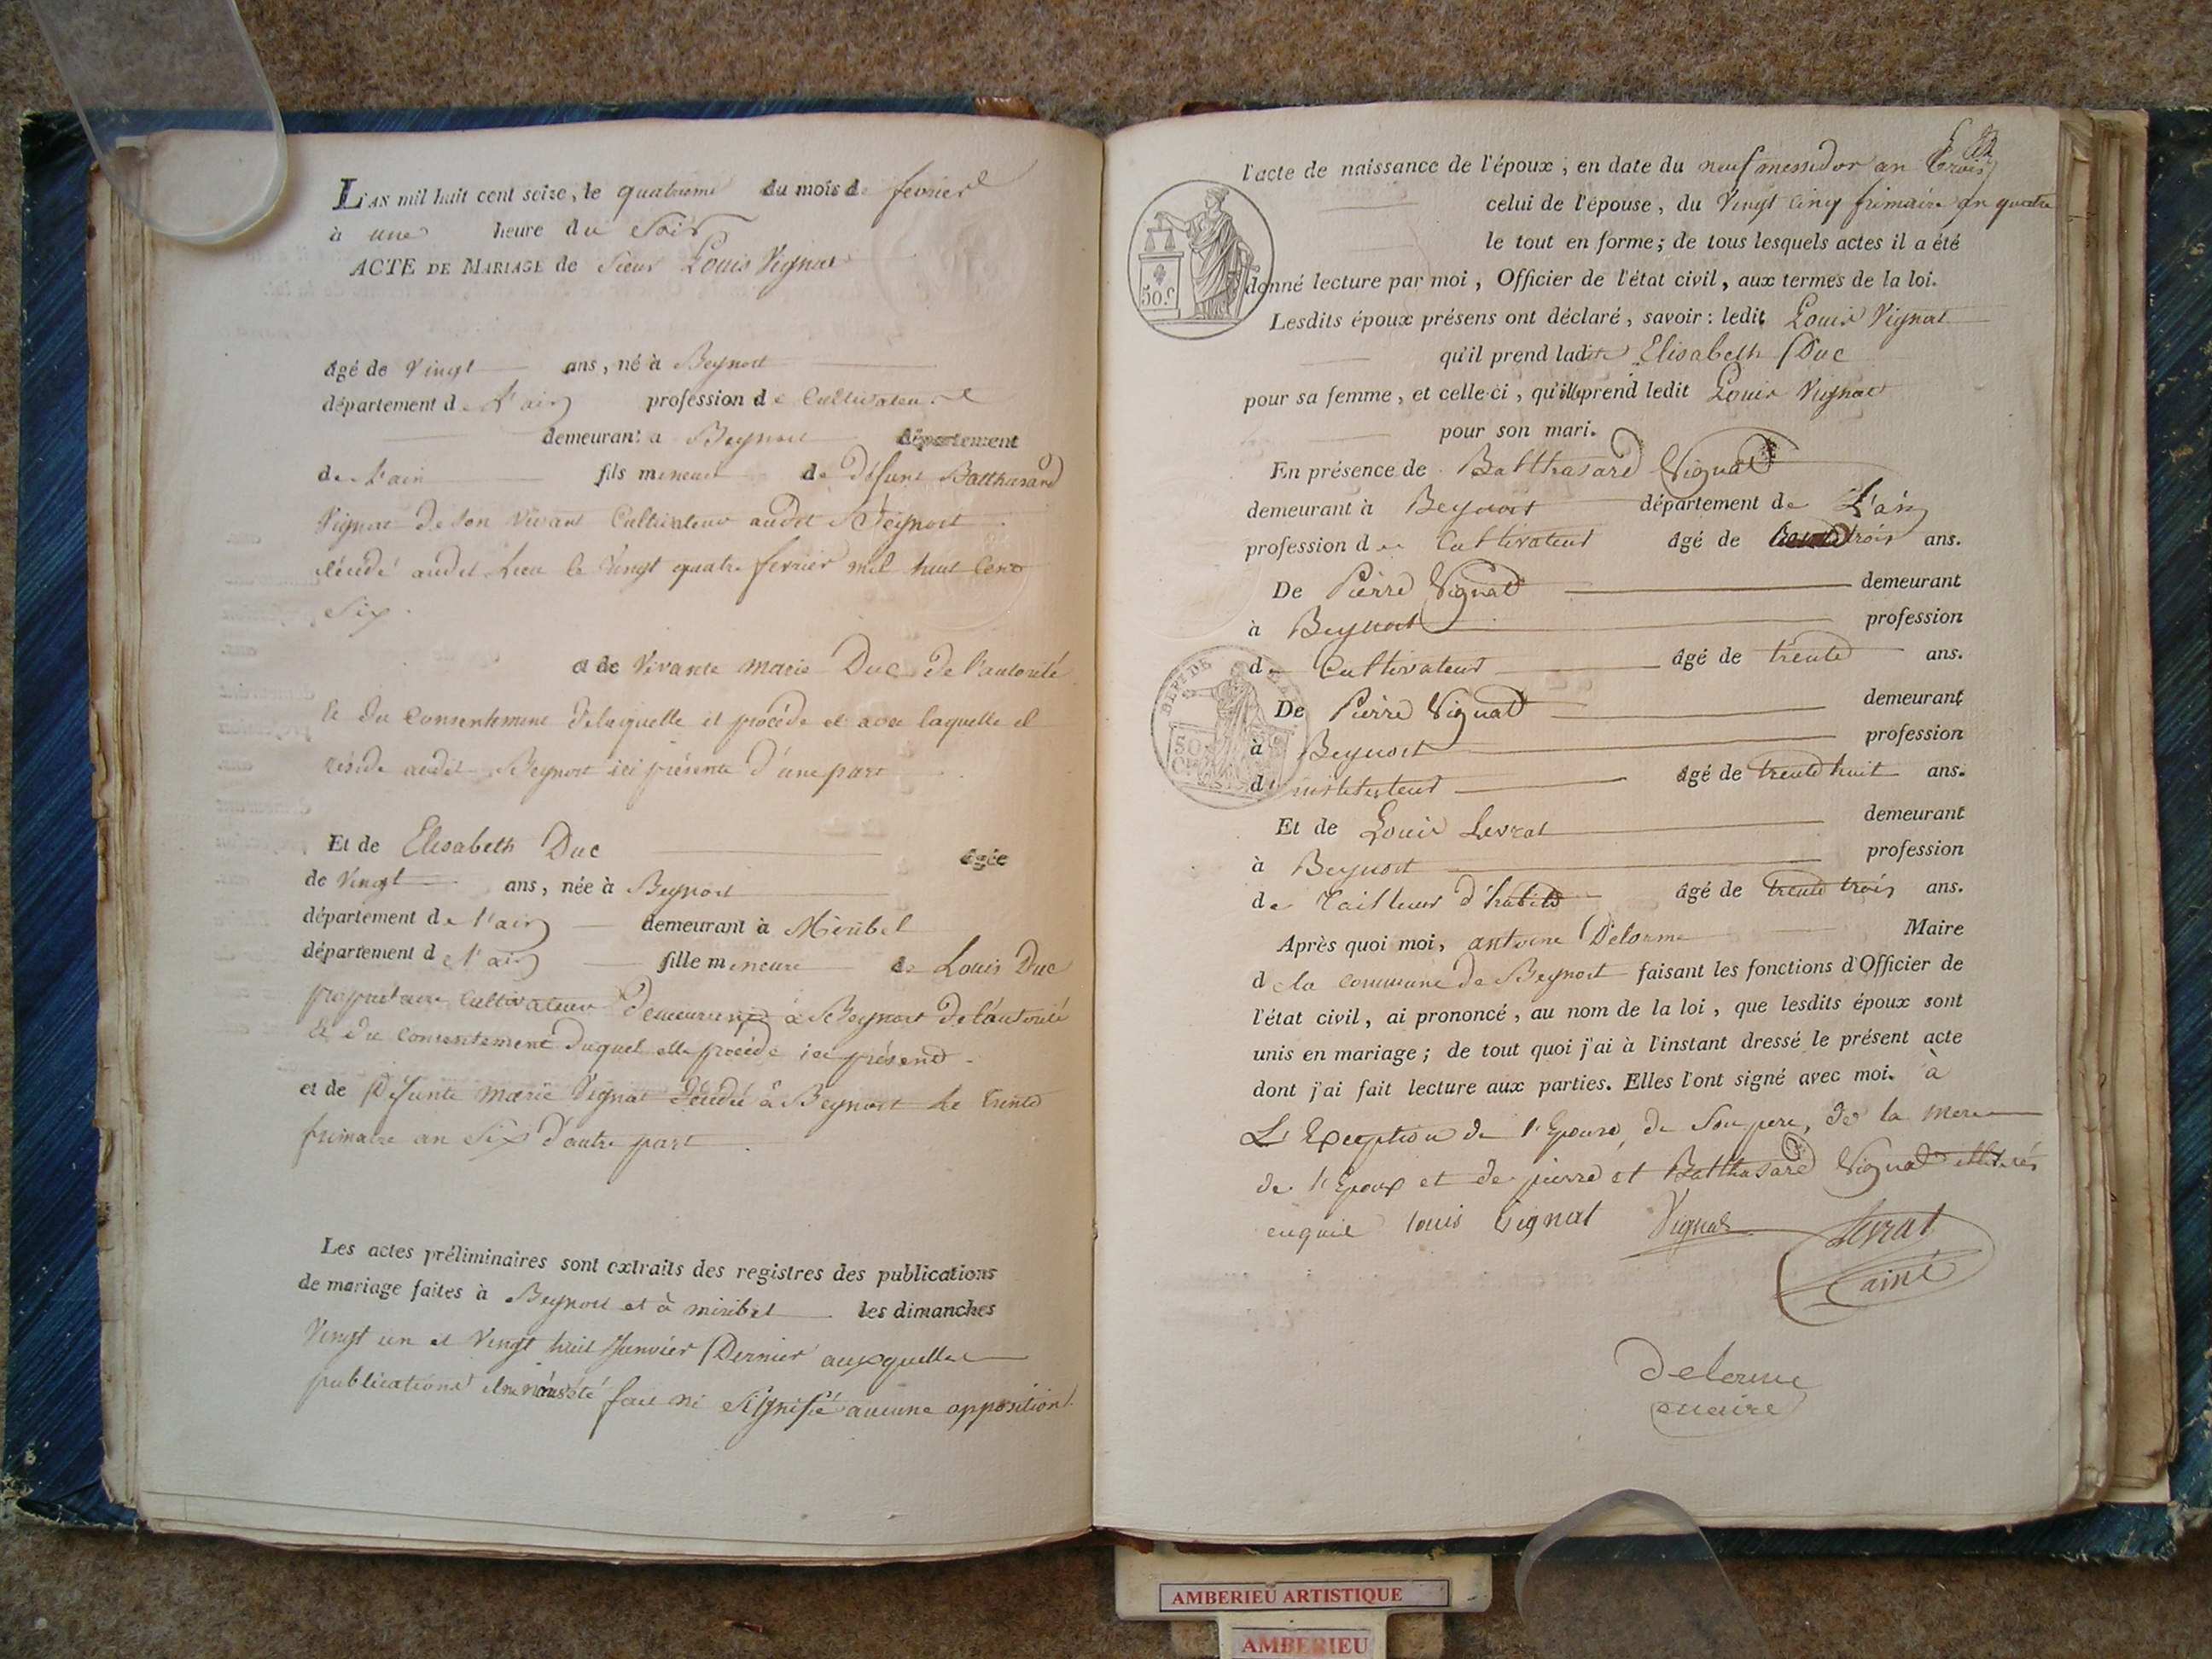 L'AN mil huit cent seize, le quatrieme du mois de fevrier
à une heure du Soir
ACTE DE MARIAGE de Sieur Louis Vignat
âgé de Vingt ans, né à Beynost
département de L'ain profession de Cultivateur
demeurant à Beynost département
de L'ain fils mineur de defunt Balthasard
Vignat de son vivant Cultivateur audit Beynost
décédé audit Lieu le Vingt quatre fevrier mil huit Cent
Six.
et de Vivante marie Duc de l'autorité
et du Consentement delaquelle il procéde et avec laquelle il
réside audit Beynost ici présente d'une part
Et de Elisabeth Duc âgée
de Vingt ans, née à Beynost
département de l'ain demeurant à Miribel
département de l'ain fille mineure de Louis Duc
propriétaire Cultivateur demeurant à Beynost de l'autorité
et du consentement duquel elle procéde ici présent
et de Defunte marie Vignat décédé à Beynost le trente
frimaire an Six d'autre part
Les actes préliminaires sont extraits des registres des publications
de mariage faites à Beynost et à miribel les dimanches
Vingt un et Vingt huit Janvier Dernier auxquelles
publications il été fait ni Signifié aucune opposition.
l'acte de naissance de l'époux, en date du neuf messidor an trois
celui de l'épouse, du Vingt Cinq frimaire an quatre
le tout en forme; de tous lesquels actes il a été
donné lecture par moi, Officier de l'état civil, aux termes de la loi.
Lesdits époux présens ont déclaré, savoir: ledit Louis Vignat
qu'il prend ladite Elisabeth Duc
50 c
pour sa femme, et celle-ci, qu'elle prend ledit Louis Vignat
pour son mari.
En présence de Balthasard Vignat
demeurant à Beynost département de L'ain
profession de Cultivateur âgé de trois ans.
De Pierre Vignat demeurant
à Beynost profession
de Cultivateur âgé de trente ans.
DEPT DE
De Pierre Vignat demeurant
à Beynost profession
50
d'instituteur âgé de trente huit ans.
Et de Louis Levrat demeurant
à Beynost profession
de tailleur d'habits âgé de trente trois ans.
Après quoi moi, antoine Delorme Maire
de la commune de Beynost faisant les fonctions d'Officier de
l'état civil, ai prononcé, au nom de la loi, que lesdits époux sont
unis en mariage; de tout quoi j'ai à l'instant dressé le présent acte
dont j'ai fait lecture aux parties. Elles l'ont signé avec moi. à
L'Exception de l'Epouse, de Son pere, de la mere
de l'Epoux et de pierre et Balthasard Vignat illiterés
enquis louis vignat Vignat Levrat
ainé
Delorme
maire
AMBERIEU ARTISTIQUE
AMBERIEU